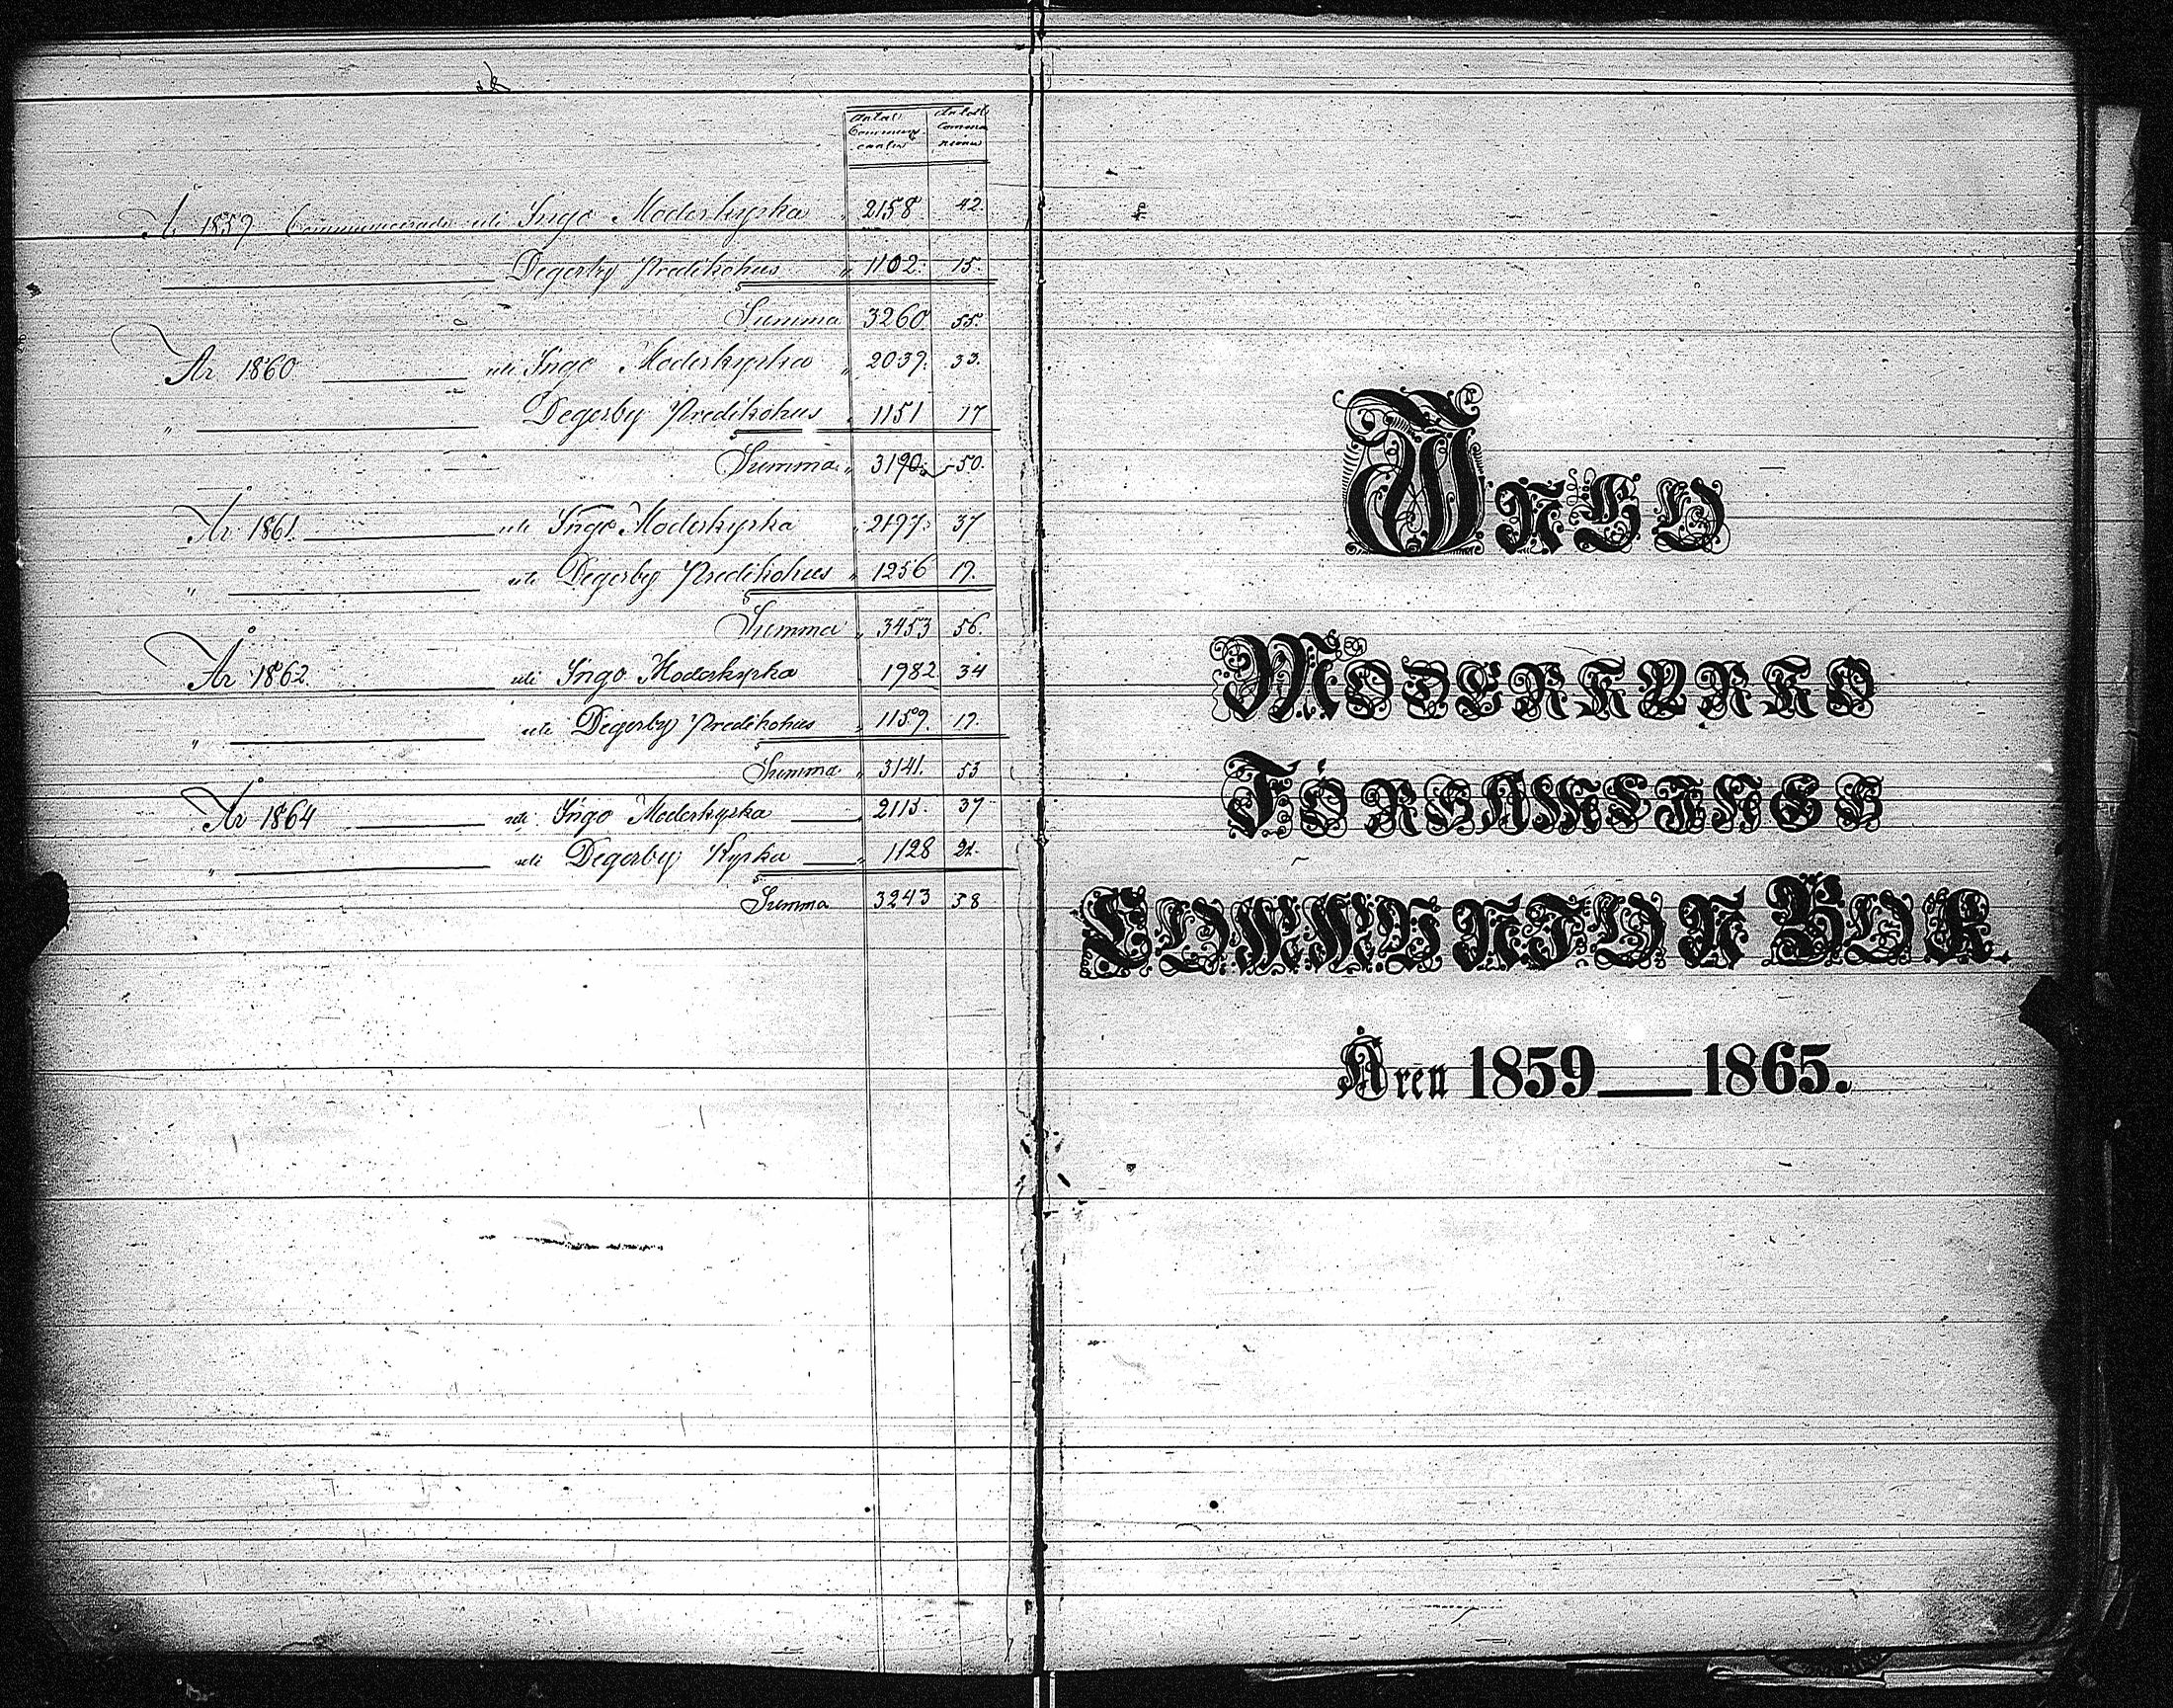 Antal Communicanter
Antal Communioner
År 1859 Communicerade uti Ingo Moderkyrka " 2158 42.
Degerby Predikohus " 1102. 15.
Summa 3260 55.
År 1860 uti Ingo Moderkyrka " 2039. 33.
" Degerby Predikohus " 1151 17
Summa " 3190. 50.
År 1861 uti Ingo Moderkyrka " 2197. 37
" uti Degerby Predikohus " 1256 19.
Summa " 3453 56.
År 1862. uti Ingo Moderkyrka " 1982 34
" uti Degerby Predikohus " 1159. 19.
Summa " 3141. 53
År 1864 uti Ingo Moderkyrka 2115. 37
" uti Degerby Kyrka " 1128 21.
Summa 3243 58
INGO
MODERKYRKO
FÖRSAMLINGS
COMMUNION BOK.
Åren 1859 — 1865.